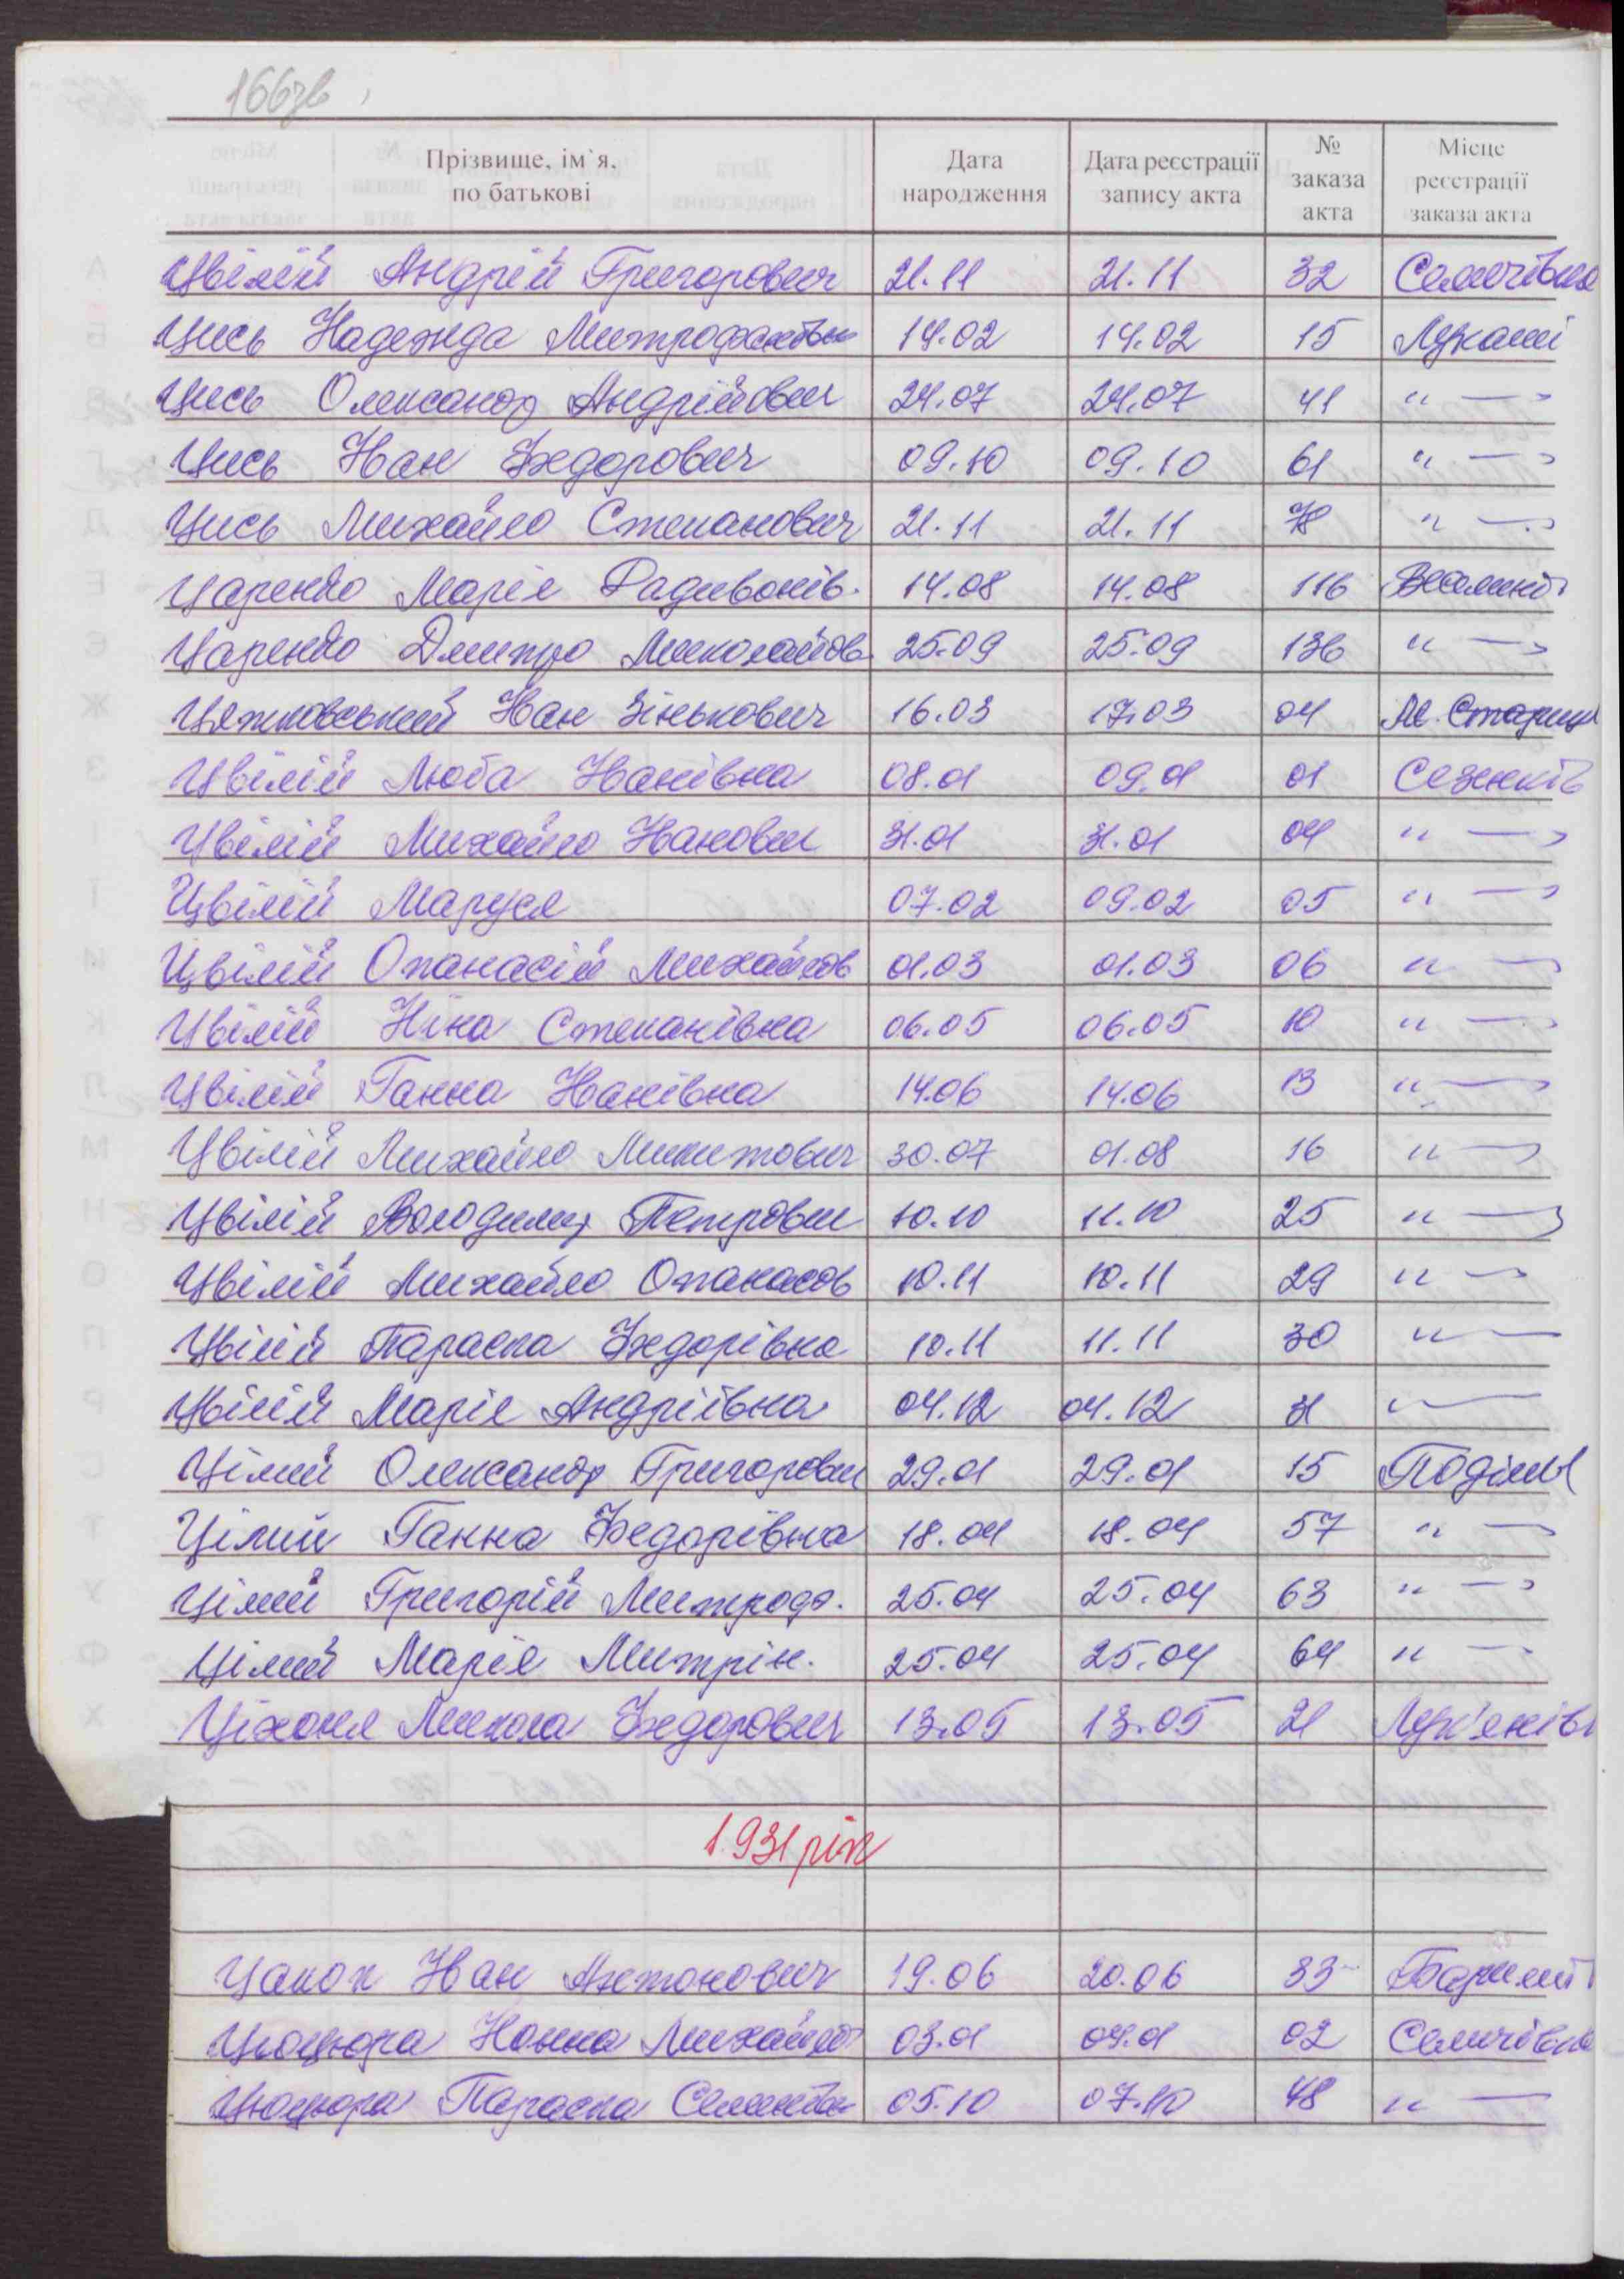 166зв
Прізвище, ім`я, по батькові | Дата народження | Дата реєстрації запису акта | № заказа акта | Місце реєстрації заказа акта
Цвілій Андрій Григорович 21.11 21.11 32 Селичівка
Цись Надежда Митрофанівн 14.02 14.02 15 Лукаші
Цись Олександр Андрійович 24.07 24.07 41 " —
Цись Іван Федорович 09.10 09.10 61 " —
Цись Михайло Степанович 21.11 21.11 78 " —
Царенко Марія Радивонів. 14.08 14.08 116
Царенко Дмитро Миколайов. 25.09 25.09 136 " —
Цяжковський Іван Зінькович 16.03 17.03 04 М. Стариця
Цвілій Люба Іванівна 08.01 09.01 01 Сезенків
Цвілій Михайло Іванович 31.01 31.01 04 " —
Цвілій Маруся 07.02 09.02 05 " —
Цвілій Опанасій Михайлов 01.03 01.03 06 " —
Цвілій Ніна Степанівна 06.05 06.05 10 " —
Цвілій Ганна Іванівна 14.06 14.06 13 " —
Цвілій Михайло Микитович 30.07 01.08 16 " —
Цвілій Володимир Петрович 10.10 11.10 25 " —
Цвілій Михайло Опанасов 10.11 10.11 29 " —
Цвілій Параска Федорівна 10.11 11.11 30 " —
Цвілій Марія Андріївна 04.12 04.12 31 " —
Цілий Олександр Григорович 29.01 29.01 15 Поділля
Цілий Ганна Федорівна 18.04 18.04 57 " —
Цілий Григорій Митроф. 25.04 25.04 63 " —
Цілий Марія Митрін. 25.04 25.04 64 " —
Ціхоня Микола Федорович 13.05 13.05 21 Лук'янів
1931 рік
Цапок Іван Антонович 19.06 20.06 33
Цюцюра Нонна Михайл 03.01 04.01 02 Селичівка
Цюцюра Параска Семенівн 05.10 07.10 48 " —